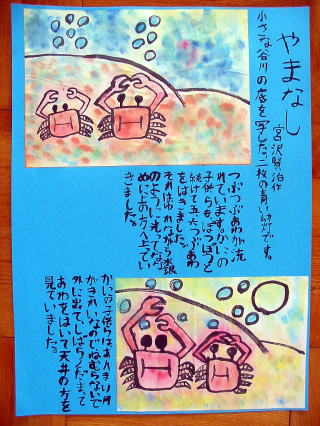 やまなし
宮沢賢治作
小さな谷川の底を写した、二枚の青い幻灯です。
つぶつぶあわが流
れています。かにの
子供らも、ぽつぽつと
続けて五六つぶあわ
をはきました。
それはゆれながら水銀
のように光ってななめ
に上の方へ上っていき
ました。
かにの子供らは、あんまり月
がきれいなのでねむらないで
外に出て、しばらくだまって
あわをはいて天井の方を
見ていました。